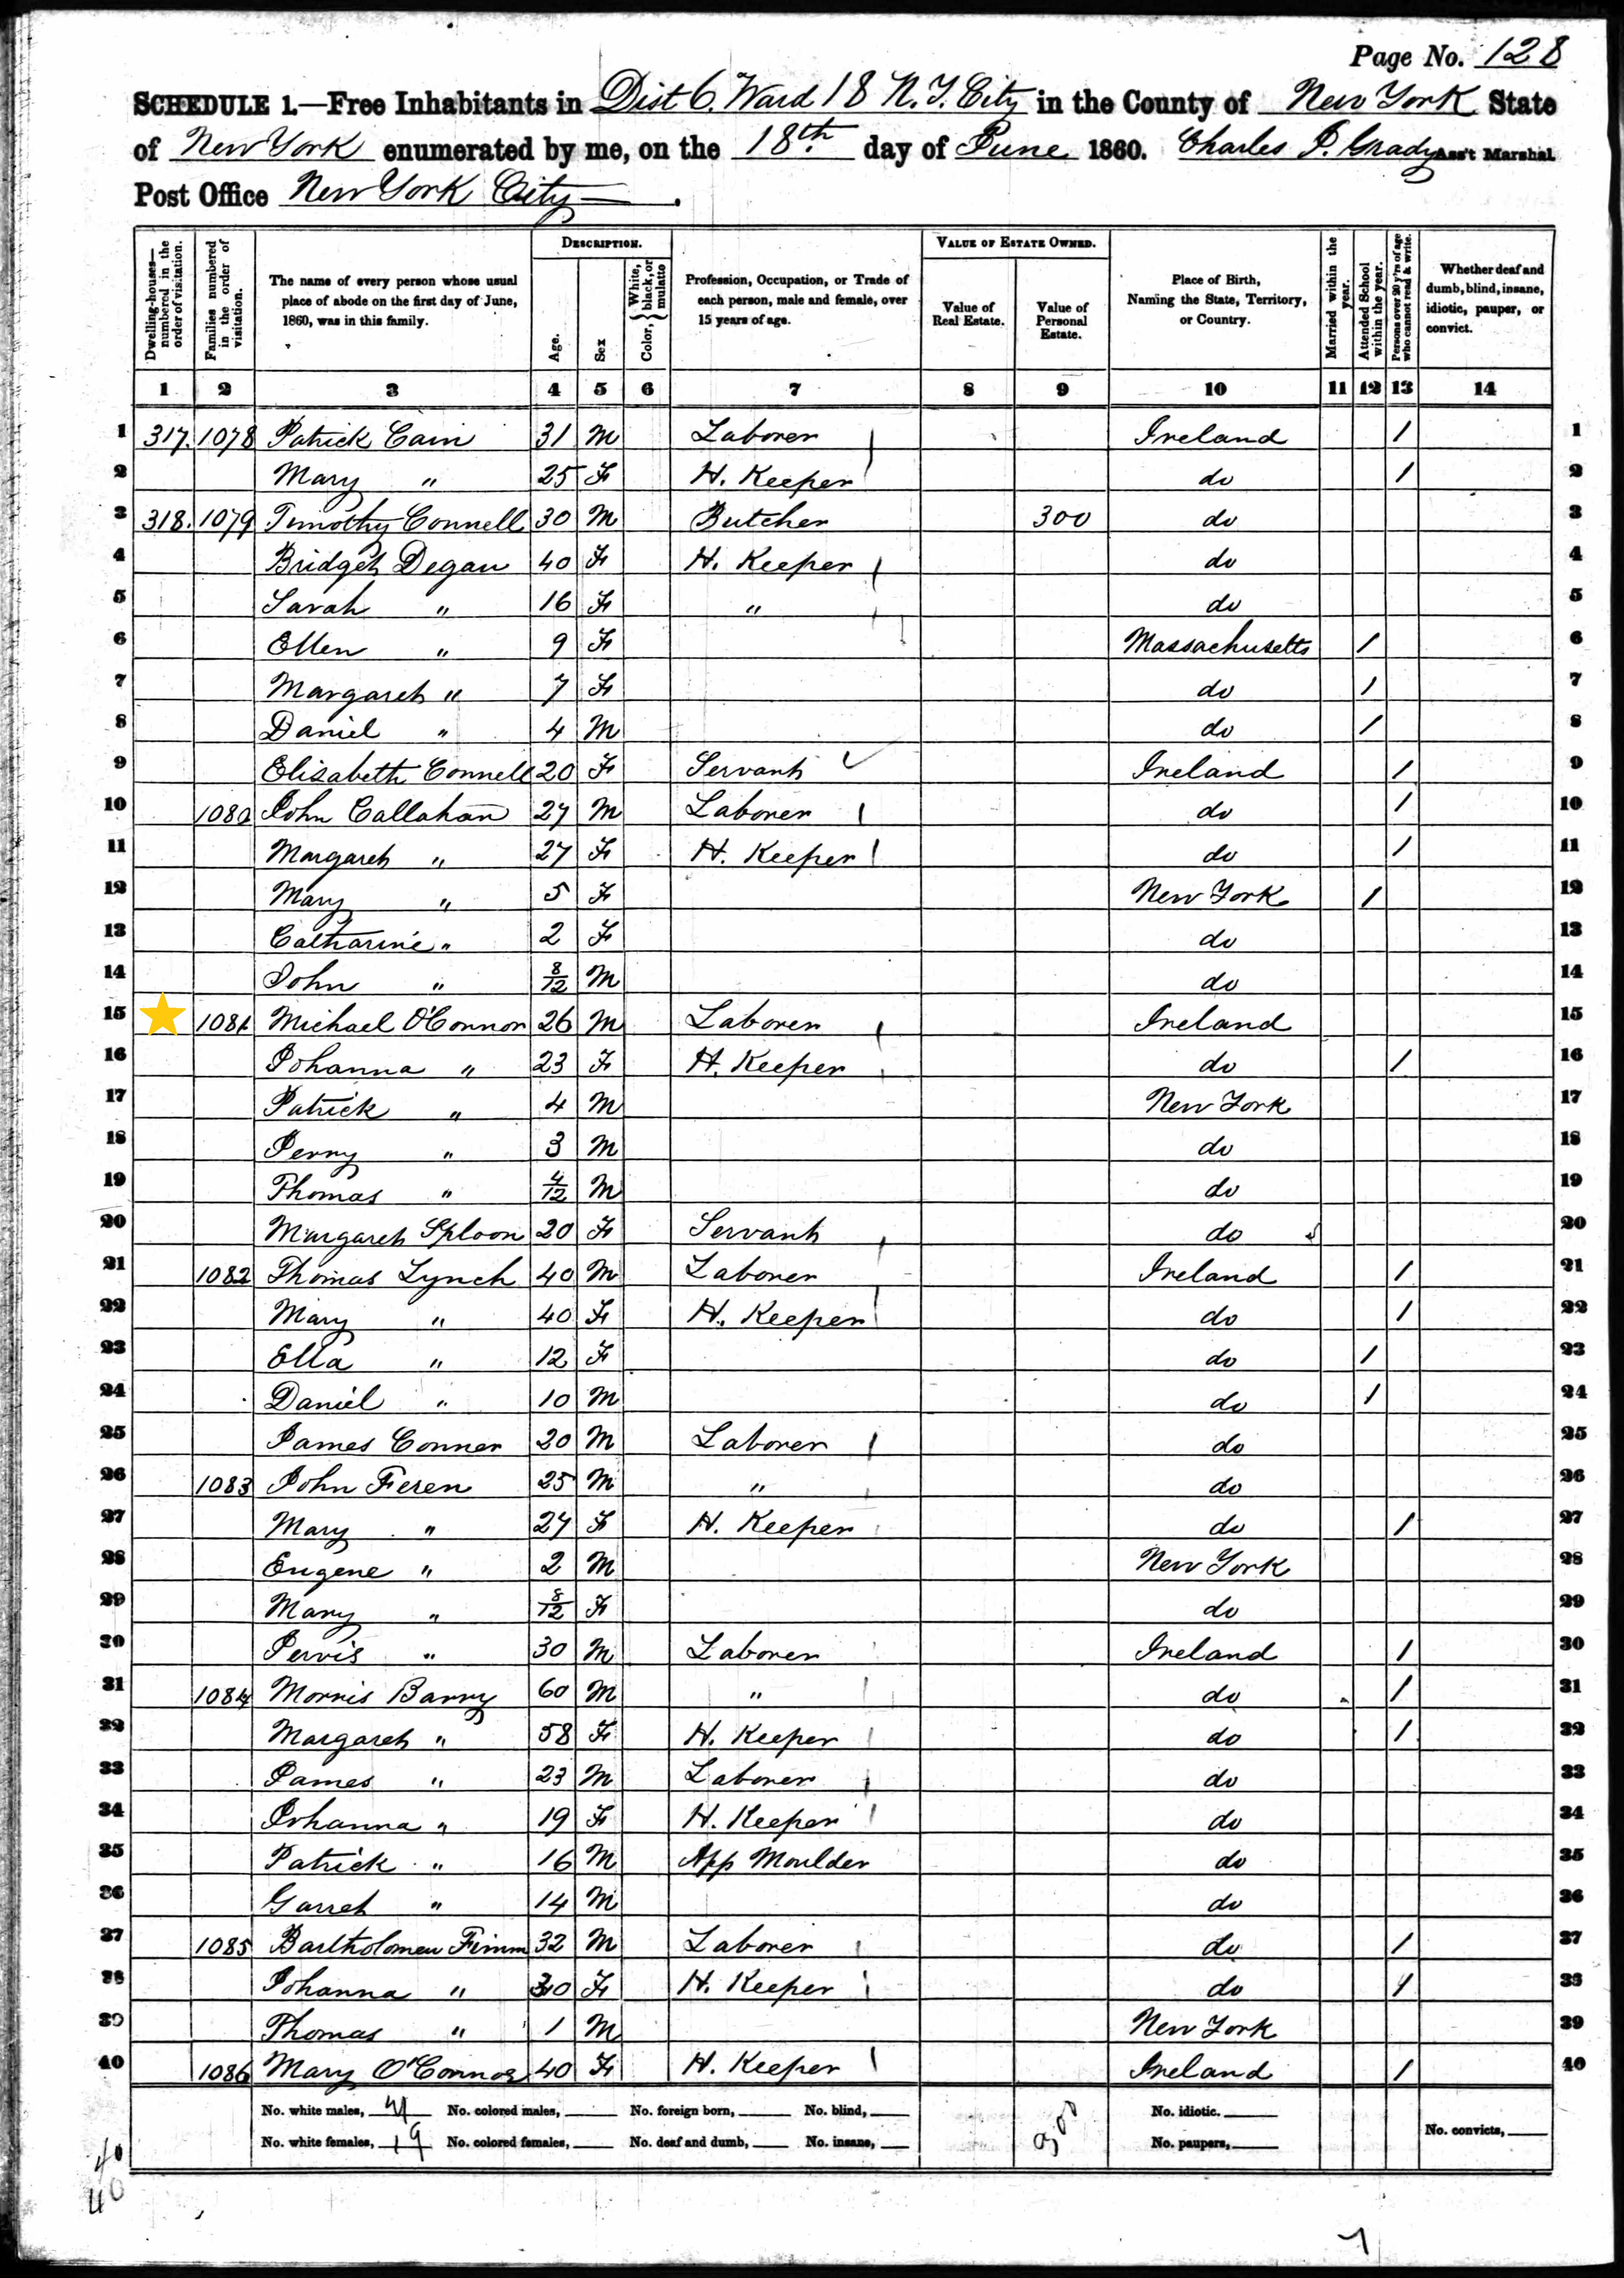 Page No. 128
SCHEDULE 1.—Free Inhabitants in Dist 6. Ward 18 N.Y. City in the County of New York State
of New York enumerated by me, on the 18th day of June 1860. Charles P. Grady Ass't Marshal
Post Office New York City.
Dwelling-houses—numbered in the order of visitation. Families numbered in the order of visitation. The name of every person whose usual place of abode on the first day of June, 1860, was in this family. DESCRIPTION. Age. Sex Color, White, black, or mulatto Profession, Occupation, or Trade of each person, male and female, over 15 years of age. VALUE OF ESTATE OWNED. Value of Real Estate. Value of Personal Estate. Place of Birth, Naming the State, Territory, or Country. Married within the year. Attended School within the year. Persons over 20 y'rs of age who cannot read & write. Whether deaf and dumb, blind, insane, idiotic, pauper, or convict.
1 2 3 4 5 6 7 8 9 10 11 12 13 14
1 317. 1078 Patrick Cain 31 M Laborer Ireland / 1
2 Mary " 25 F H. Keeper do / 2
3 318. 1079 Timothy Connell 30 M Butcher 300 do 3
4 Bridget Degan 40 F H. Keeper do 4
5 Sarah " 16 F " do 5
6 Ellen " 9 F Massachusetts / 6
7 Margaret " 7 F do / 7
8 Daniel " 4 M do / 8
9 Elisabeth Connell 20 F Servant Ireland / 9
10 1080 John Callahan 27 M Laborer do / 10
11 Margaret " 27 F H. Keeper do / 11
12 Mary " 5 F New York / 12
13 Catharine " 2 F do 13
14 John " 8/12 M do 14
15 1081 Michael O'Connor 26 M Laborer Ireland 15
16 Johanna " 23 F H. Keeper do / 16
17 Patrick " 4 M New York 17
18 Jerry " 3 M do 18
19 Thomas " 4/12 M do 19
20 Margaret Sploon 20 F Servant do 20
21 1082 Thomas Lynch 40 M Laborer Ireland / 21
22 Mary " 40 F H. Keeper do / 22
23 Ella " 12 F do / 23
24 Daniel " 10 M do / 24
25 James Conner 20 M Laborer do 25
26 1083 John Feren 25 M " do 26
27 Mary " 27 F H. Keeper do / 27
28 Eugene " 2 M New York 28
29 Mary " 8/12 F do 29
30 Jervis " 30 M Laborer Ireland / 30
31 1084 Morris Barry 60 M " do / 31
32 Margaret " 58 F H. Keeper do / 32
33 James " 23 M Laborer do 33
34 Johanna " 19 F H. Keeper do 34
35 Patrick " 16 M App Moulder do 35
36 Garret " 14 M do 36
37 1085 Bartholomew Finn 32 M Laborer do / 37
38 Johanna " 30 F H. Keeper do / 38
39 Thomas " 1 M New York 39
40 1086 Mary O'Connor 40 F H. Keeper Ireland / 40
No. white males, 21 No. colored males, No. foreign born, No. blind, No. idiotic.
No. white females, 19 No. colored females, No. deaf and dumb, No. insane, No. paupers, No. convicts,
40
40